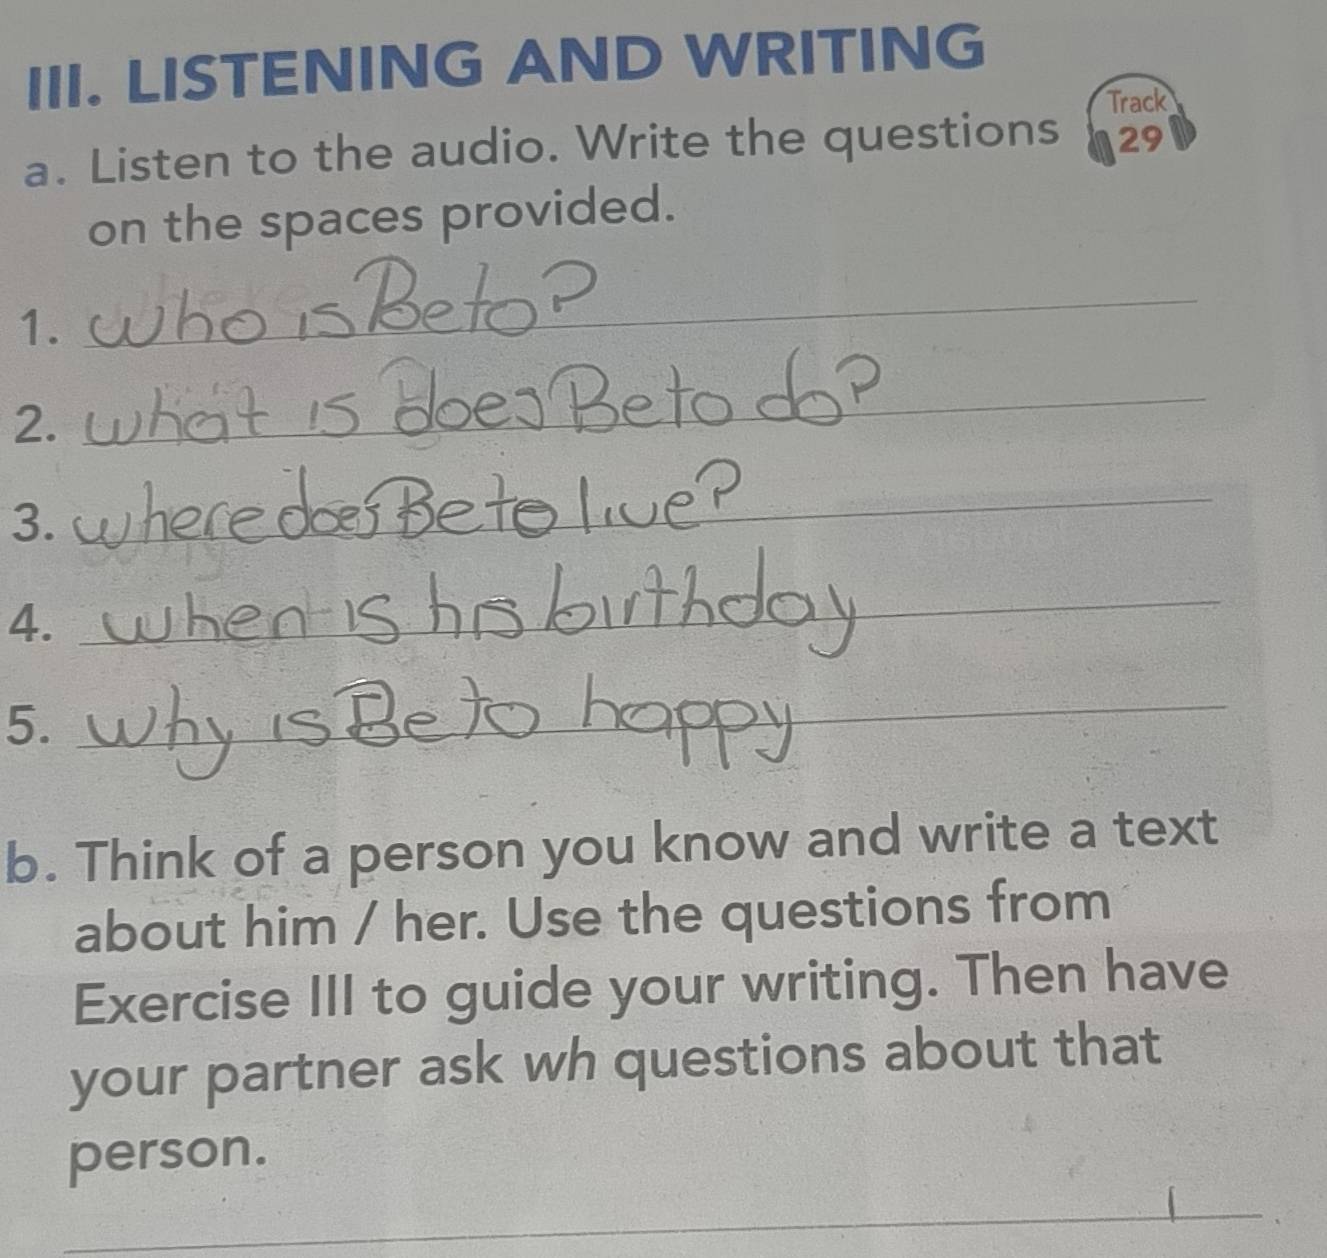 III. LISTENING AND WRITING
Track
29
a. Listen to the audio. Write the questions
on the spaces provided.
1. who is Beto?
2. what is does Beto do?
3. where does Beto live?
4. when is his birthday
5. why is Beto happy
b. Think of a person you know and write a text
about him / her. Use the questions from
Exercise III to guide your writing. Then have
your partner ask wh questions about that
person.